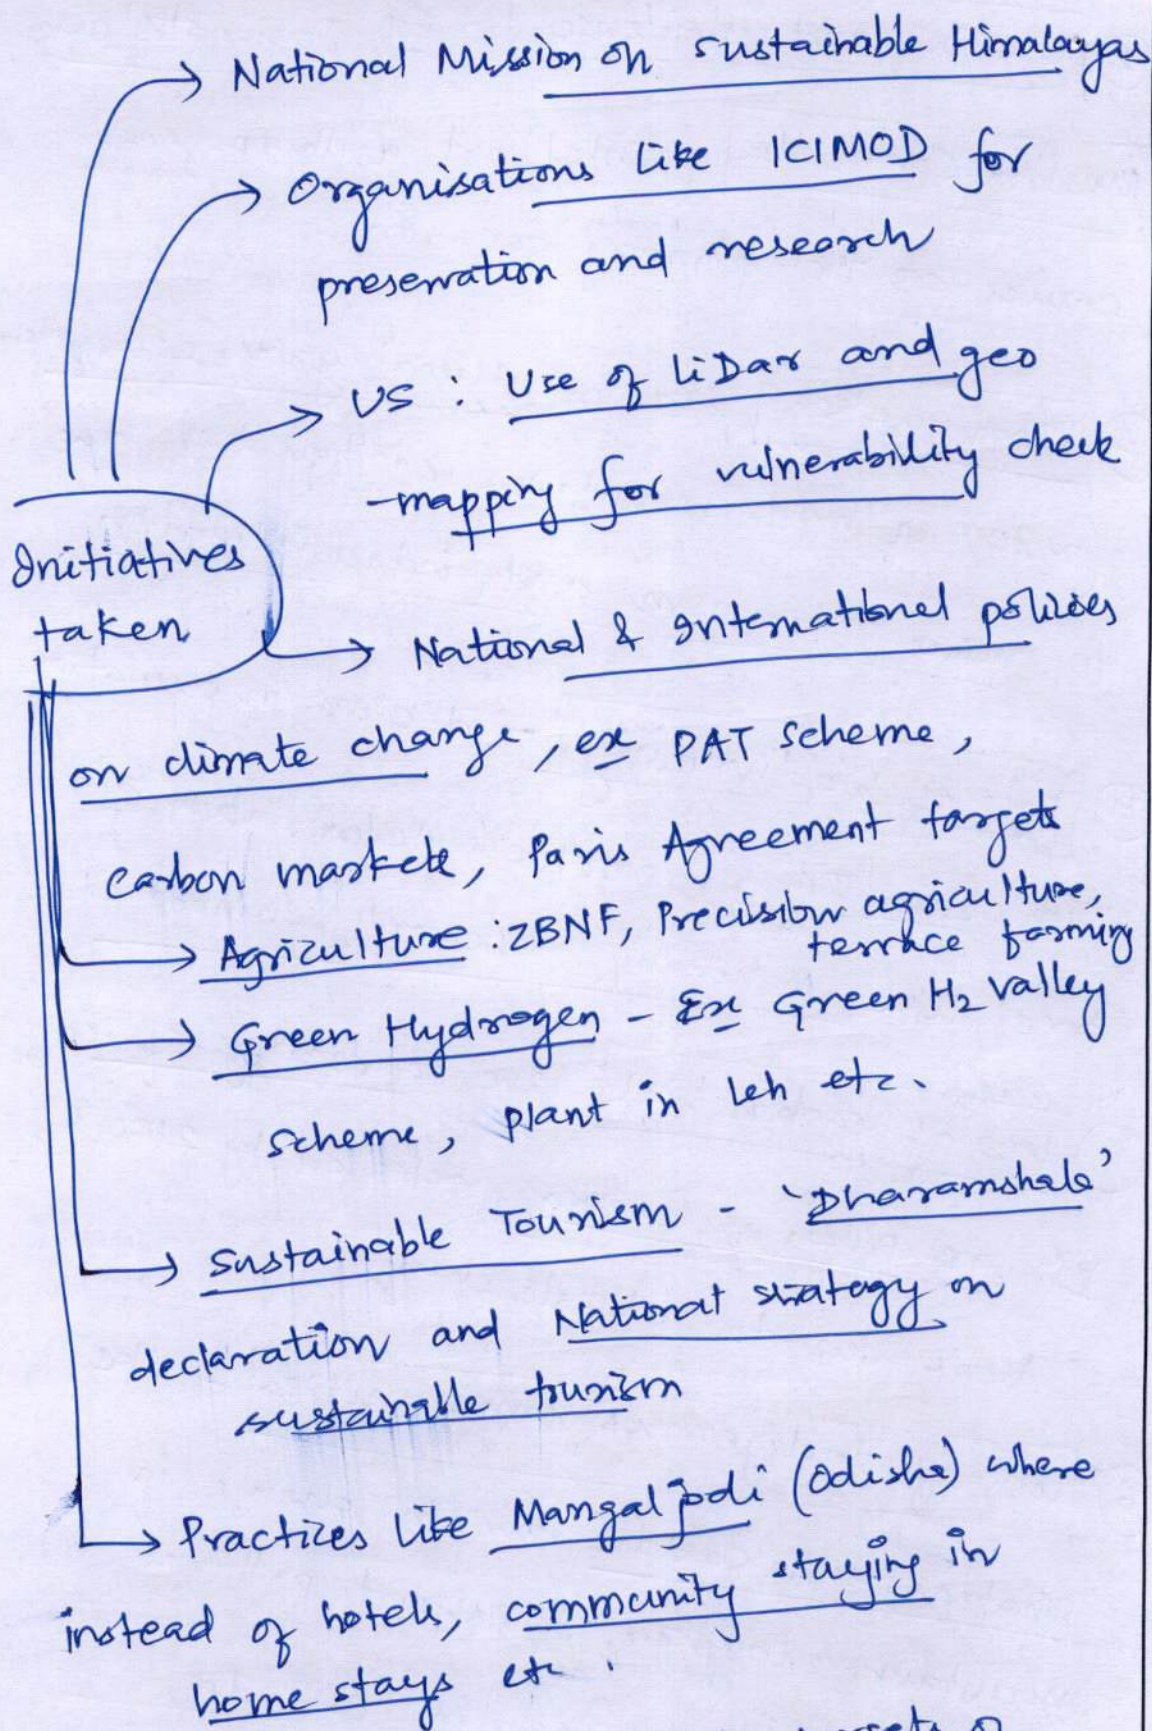 National Mission on sustainable Himalayas
Organisations like ICIMOD for
preservation and research
US : Use of LiDar and geo
-mapping for vulnerability check
Initiatives
taken
National & International policies
on climate change, ex PAT scheme,
carbon markets, Paris Agreement targets
Agriculture : ZBNF, Precision agriculture,
terrace farming
Green Hydrogen - Ex Green H2 valley
scheme, plant in Leh etc.
Sustainable Tourism - 'Dharamshala'
declaration and National strategy on
sustainable tourism
Practices like Mangaljodi (Odisha) where
instead of hotels, community staying in
home stays etc.